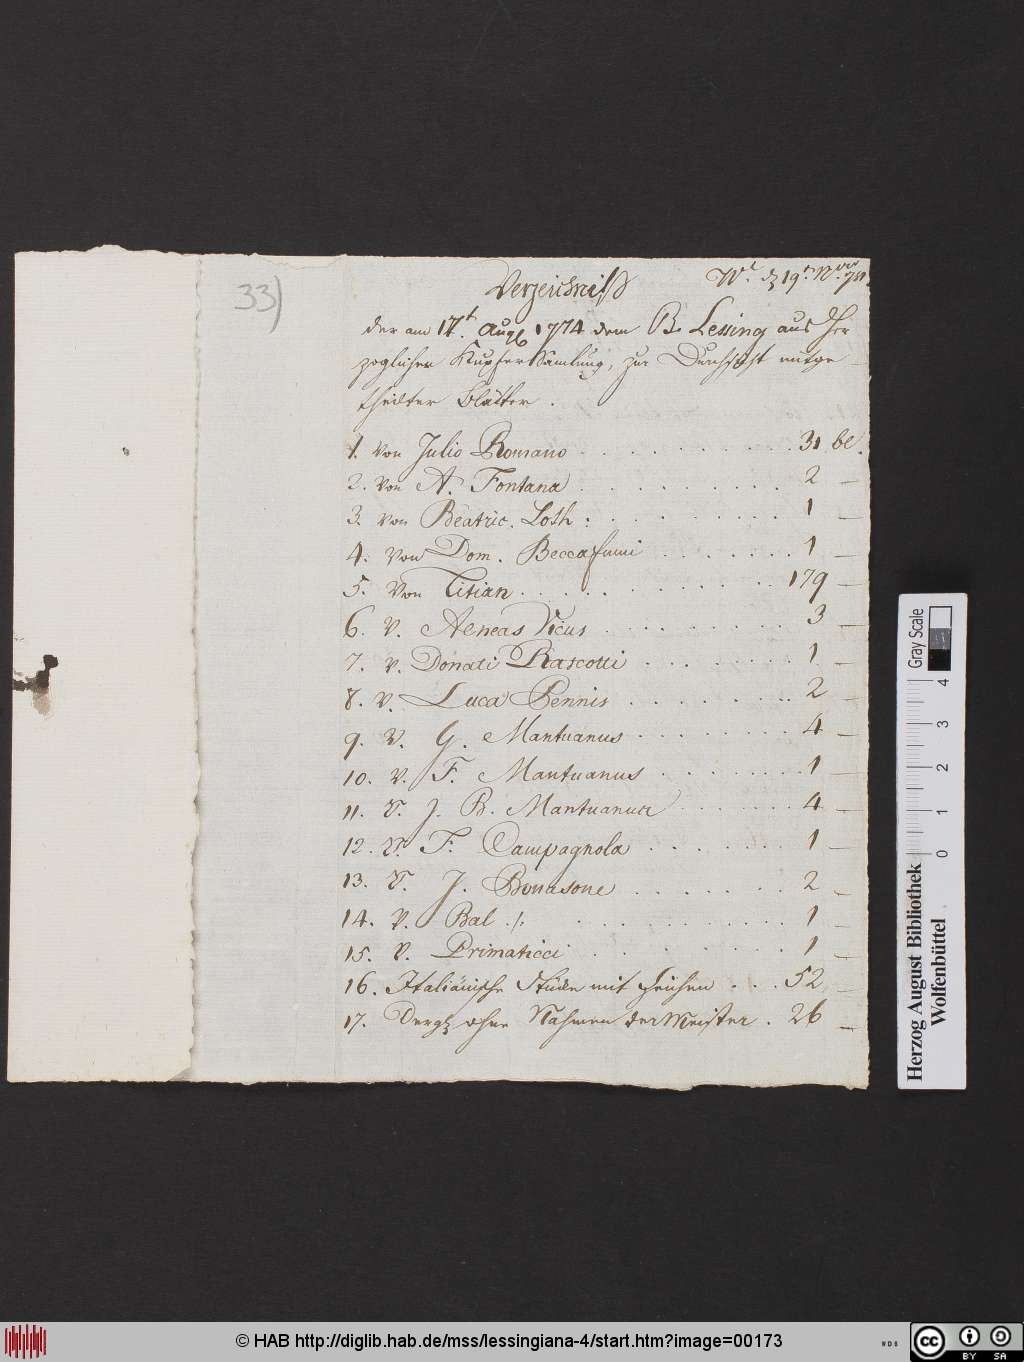 33)
Verzeichniß
Wl. d 19t. Nvr 781.
der am 17t. Augb 1774 dem B. Lessing aus Her
zoglicher KupferSamlung, zur Durchsicht mitge
theilter Blätter.
1. Von Julio Romano . . . . . . . . . . . 31 bl.
2. Von A. Fontana . . . . . . . . . . 2 —
3. Von Beatric. Loth: . . . . . . . . . 1 —
4. Von Dom. Beccafumi . . . . . . . 1 —
5. Von Titian . . . . . . . . . . . 179 —
6. V. Aeneas Vicus . . . . . . . . . 3 —
7. v. Donati Rascotti . . . . . . . 1 —
8. v. Luca Pennis . . . . . . . . 2 —
9. V. G. Mantuanus . . . . . . . . 4 —
10. v. F. Mantuanus . . . . . . . 1 —
11. V. J. B. Mantuanus . . . . . . 4 —
12. V. F. Campagnola . . . . . . . 1 —
13. V. J. Bonasone . . . . . . . 2 —
14. V. Bal ./: . . . . . . . . . 1 —
15. V. Primaticci . . . . . . . . 1 —
16. Italiänische Stücke mit Zeichen . . . 52 —
17. Dergl ohne Nahmen der Meister . 26 —
Gray Scale
0 1 2 3 4
Herzog August Bibliothek
Wolfenbüttel
© HAB http://diglib.hab.de/mss/lessingiana-4/start.htm?image=00173
WDB
cc BY SA